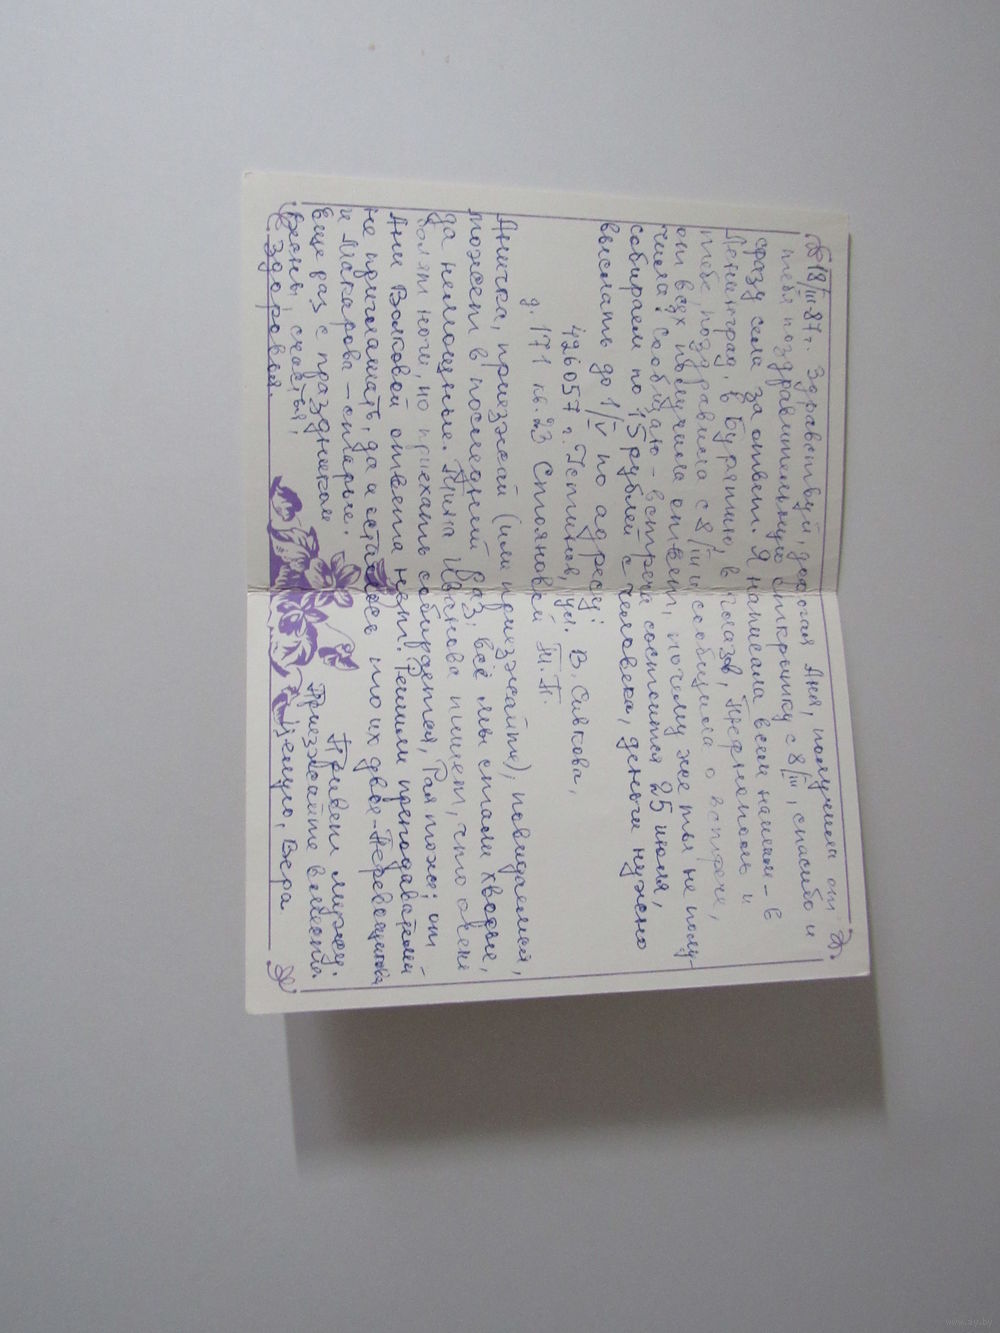 18/III 87 г. Здравствуй, дорогая Аня, получила от
тебя поздравительную открытку с 8/III, спасибо и
сразу села за ответ. Я написала всем нашим – в
Ленинград, в Бурятию, в Глазов, Пржевальск и
тебе, поздравила с 8/III и сообщила о встрече,
от всех получила ответ, почему же ты не полу-
чила? Сообщаю – встреча состоится 25 июля,
собираем по 15 рублей с человека, деньги нужно
выслать до 1/V по адресу:
426057 г. Устинов, ул. В. Сивкова,
д. 171 кв. 23 Стояновой Т. П.
Анечка, приезжай (или приезжайте), повидаемся,
может в последний раз, всё мы стали хворые,
да немощные. Тина Иванова пишет, что очень
болят ноги, но приехать собирается, Рая тоже; от
Ани Волковой ответа нет. Решили преподавателей
не приглашать, да и осталось то их двое – Перевощикова
и Макарова – старые.
Еще раз с праздником
Весны, счастья,
здоровья.
Привет мужу.
Приезжайте вместе.
Целую, Вера
www.ay.by